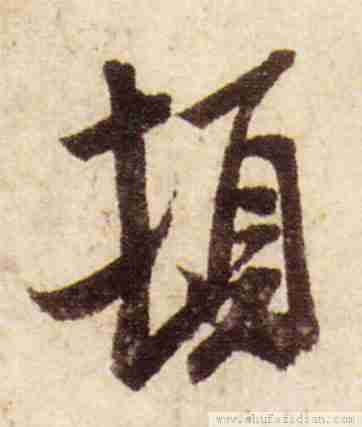 頓
www.shufazidian.com